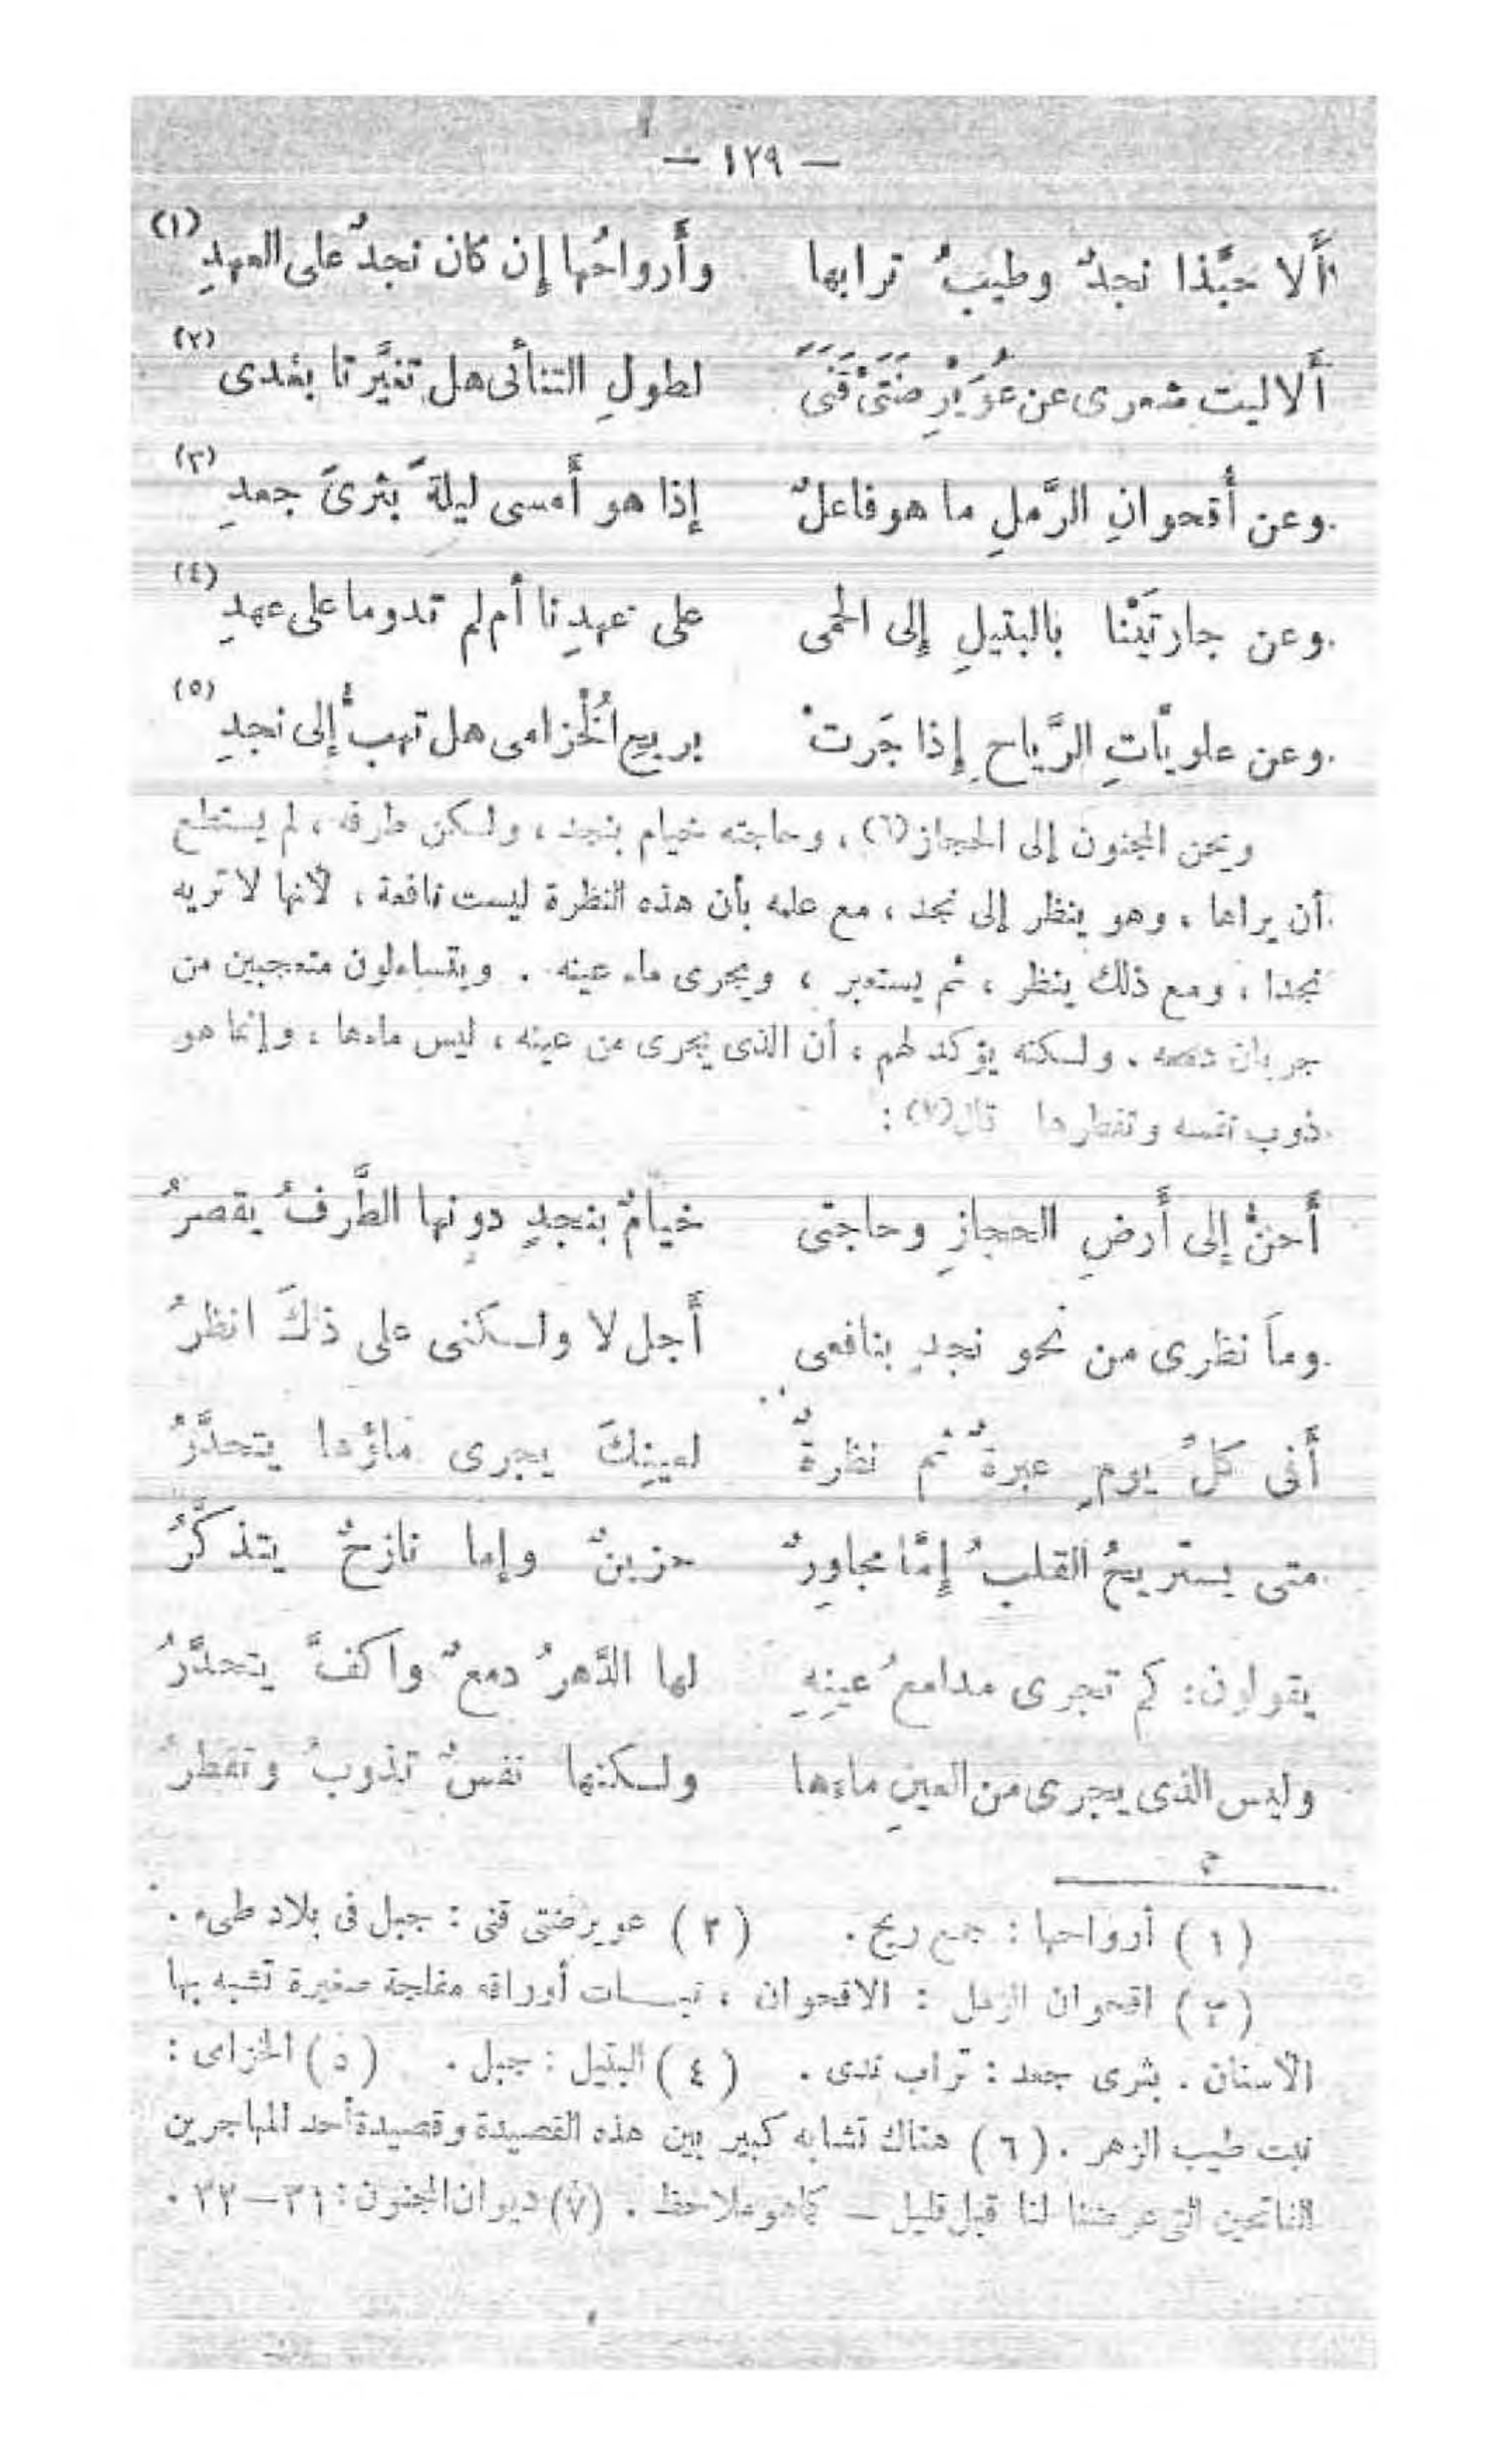 — ١٢٩ —
أَلا حبَّذا نجدٌ وطيبُ ترابها وأَرواحُها إِن كان نجدٌ على العهدِ (١)
أَلا ليت شعرى عن عُوَيْرِضَتَىْ قَنَىً لطولِ التنائى هل تغيَّرتا بعْدى (٢)
وعن أُقحوانِ الرَّملِ ما هو فاعلٌ إذا هو أَمسى ليلةً بثرىً جعدِ (٣)
وعن جارتَيْنا بالبتيلِ إلى الحمى على عهدِنا أم لم تدوما على عهدِ (٤)
وعن علويَّاتِ الرَّياحِ إِذا جَرتْ بريحِ الُخْزامى هل تهبُّ إلى نجدِ (٥)
ويحن المجنون إلى الحجاز (٦) ، وحاجته خيام بنجد ، ولكن طرفه ، لم يستطع
أن يراها ، وهو ينظر إلى نجد ، مع علمه بأن هذه النظرة ليست نافعة ، لأنها لا تريه
نجدا ، ومع ذلك ينظر ، ثم يستعبر ، ويجرى ماء عينه . ويتساءلون متعجبين من
جريان دمعه . ولكنه يؤكد لهم ، أن الذى يجرى من عينه ، ليس ماءها ، وإنما هو
ذوب نفسه وتفطرها قال (٧) :
أَحنُّ إلى أَرضِ الحجازِ وحاجتى خيامٌ بنجدٍ دونها الطَّرفُ يقصرُ
وماَ نظرى من نحو نجدٍ بنافعى أَجل لا ولكنى على ذلكَ انظرُ
أَفى كلِّ يومٍ عبرةٌ ثم نظرةٌ لعينِكَ يجرى ماؤها يتحدَّرُ
متى يستريحُ القلبُ إِمَّا مجاوِرٌ حزينٌ وإما نازحٌ يتذكَّرُ
يقولون : كم تجرى مدامعُ عينِهِ لها الدَّهرُ دمعٌ واكفٌ يتحدَّرُ
وليس الذى يجرى من العينِ ماءها ولكنها نفسٌ تذوبُ وتقطرُ
( ١ ) أرواحها : جمع ريح . ( ٢ ) عويرضتى قنى : جبل فى بلاد طىء .
( ٣ ) اقحوان الرمل : الاقحوان ، نبات أوراقه مفلجة صغيرة تشبه بها
الأسنان . بثرى جعد : تراب ندى . ( ٤ ) البتيل : جبل . ( ٥ ) الخزامى :
نبت طيب الزهر . ( ٦ ) هناك تشابه كبير بين هذه القصيدة وقصيدة أحد المهاجرين
الفاتحين التى عرضنا لنا قبل قليل — كما هو ملاحظ . (٧) ديوان المجنون : ٣١ — ٣٢ .